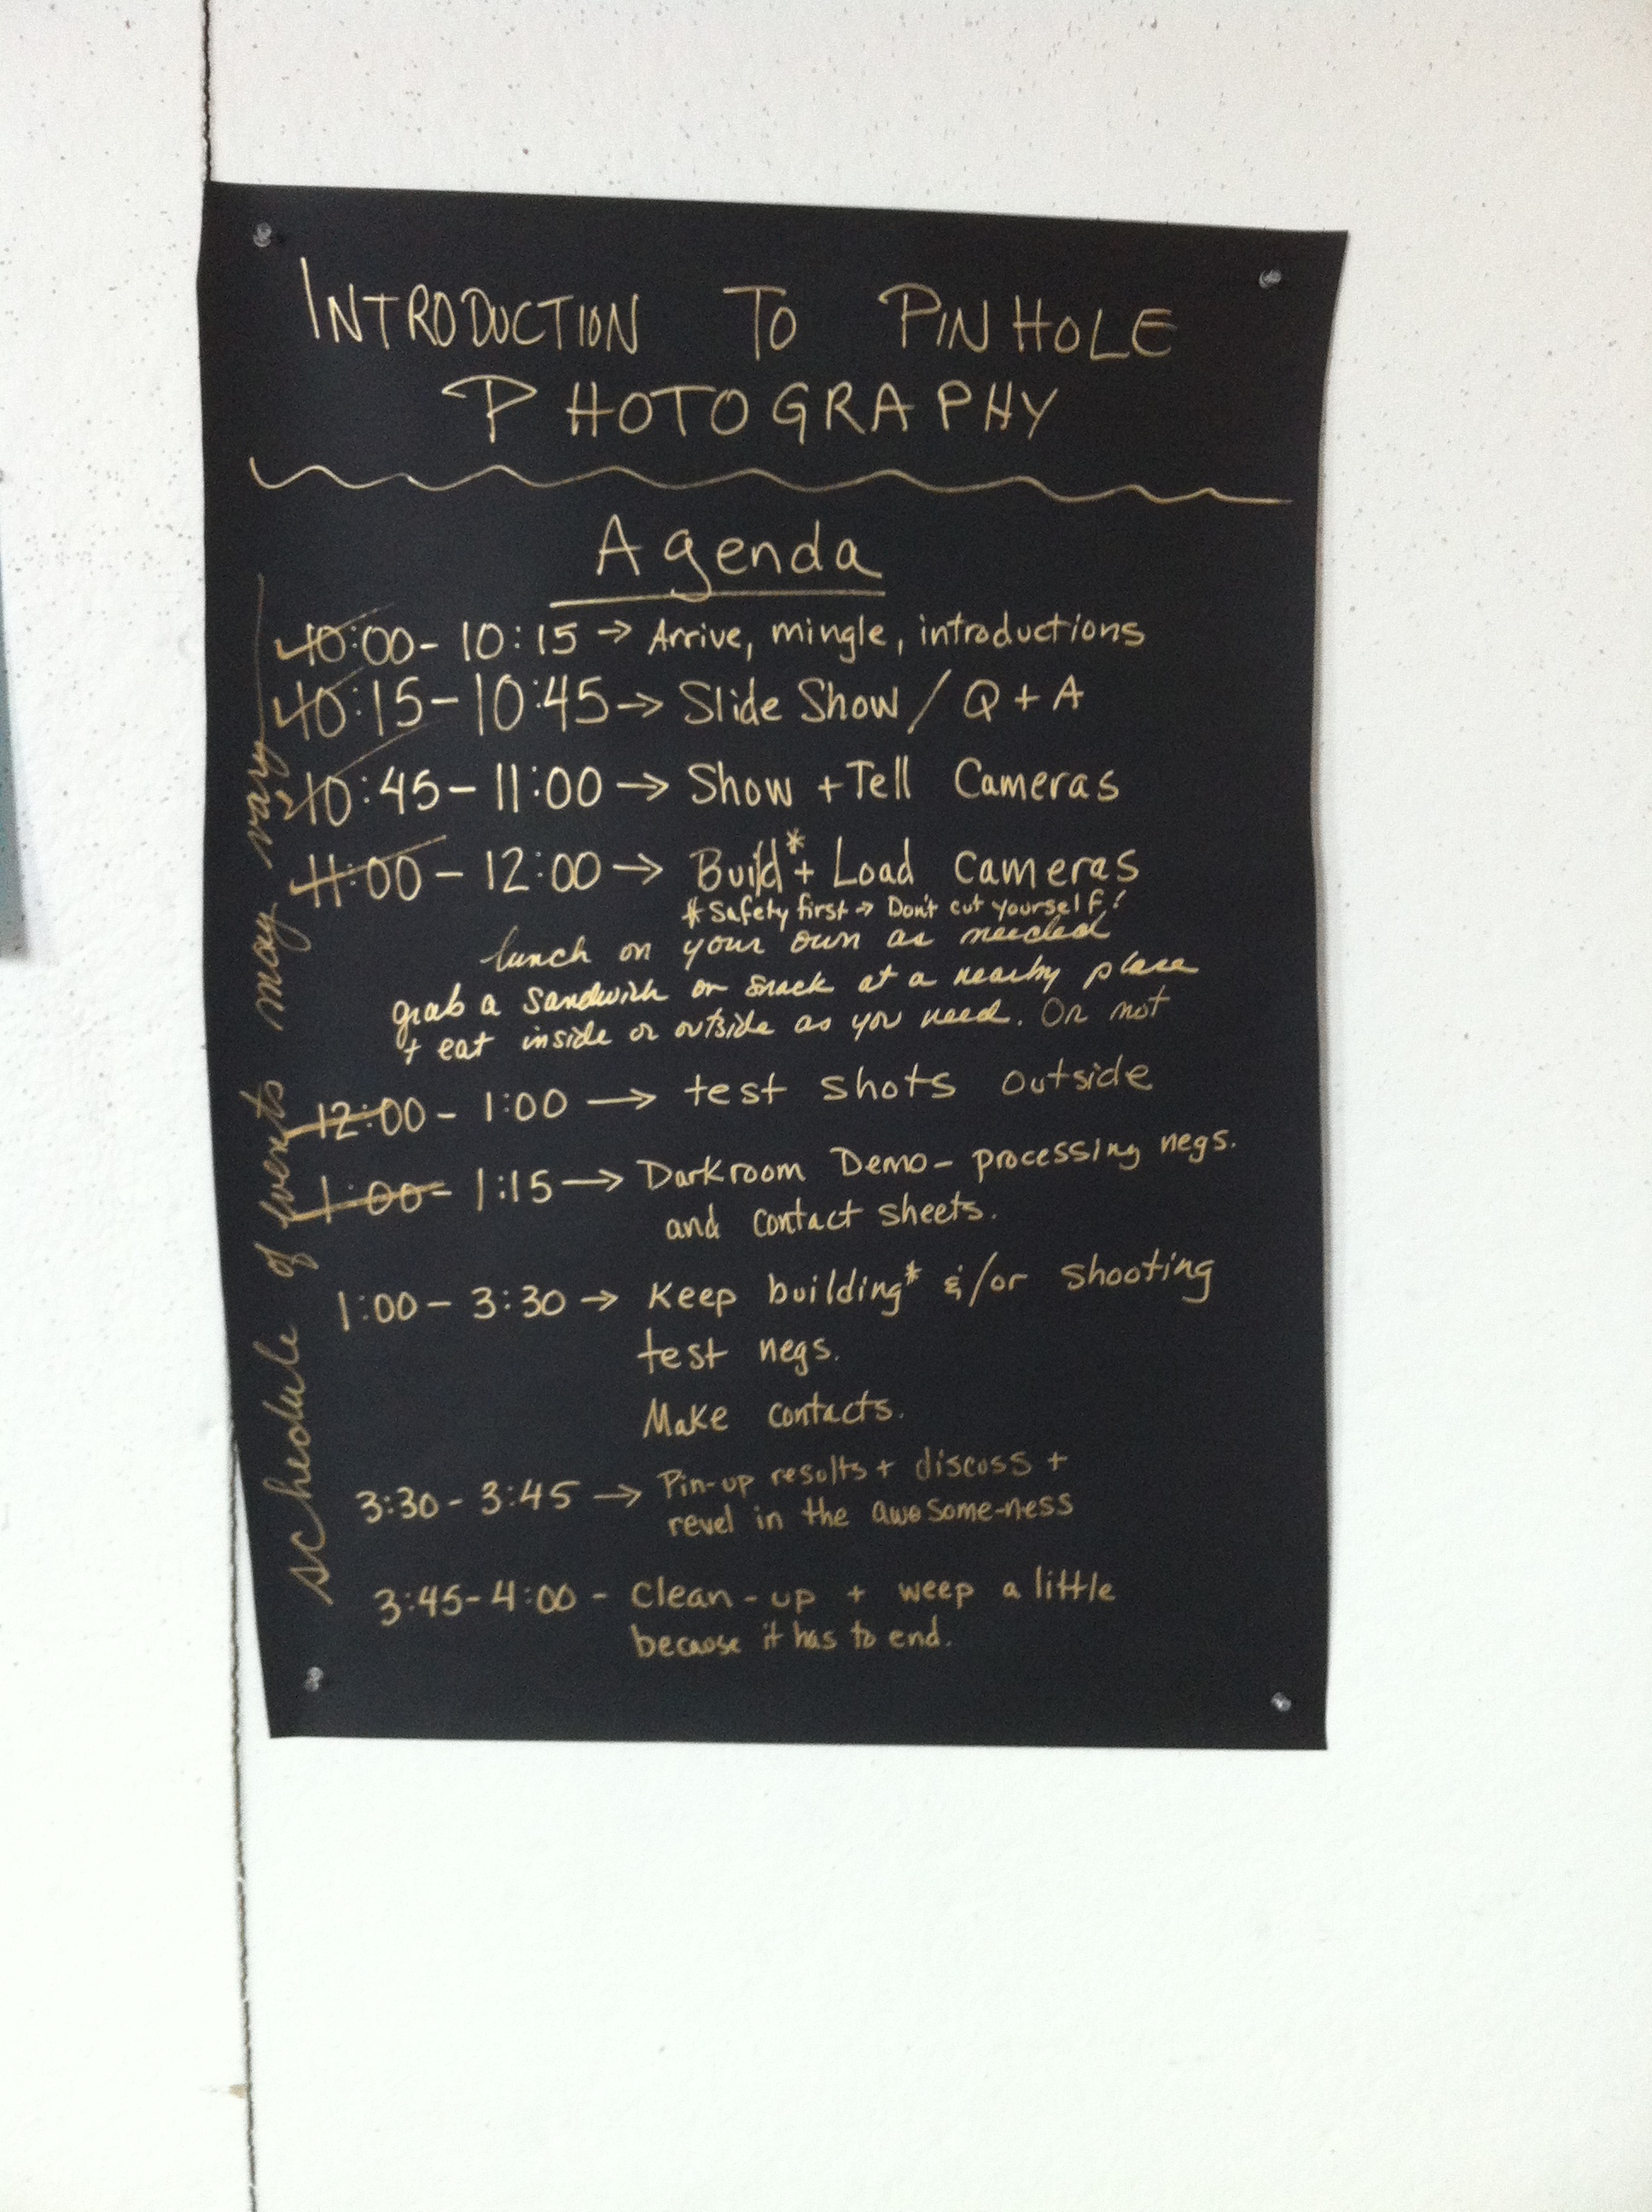 INTRODUCTION TO PINHOLE
PHOTOGRAPHY
Agenda
10:00 - 10:15 → Arrive, mingle, introductions
10:15 - 10:45 → Slide Show / Q + A
10:45 - 11:00 → Show + Tell Cameras
11:00 - 12:00 → Build* + Load Cameras
* Safety first → Don't cut yourself!
lunch on your own as needed
grab a sandwich or snack at a nearby place
+ eat inside or outside as you need. Or not
12:00 - 1:00 → test shots outside
1:00 - 1:15 → Darkroom Demo - processing negs.
and contact sheets.
1:00 - 3:30 → Keep building* &/or shooting
test negs.
Make contacts.
3:30 - 3:45 → Pin-up results + discuss +
revel in the awesome-ness
3:45 - 4:00 - Clean-up + weep a little
because it has to end.
schedule of events may vary